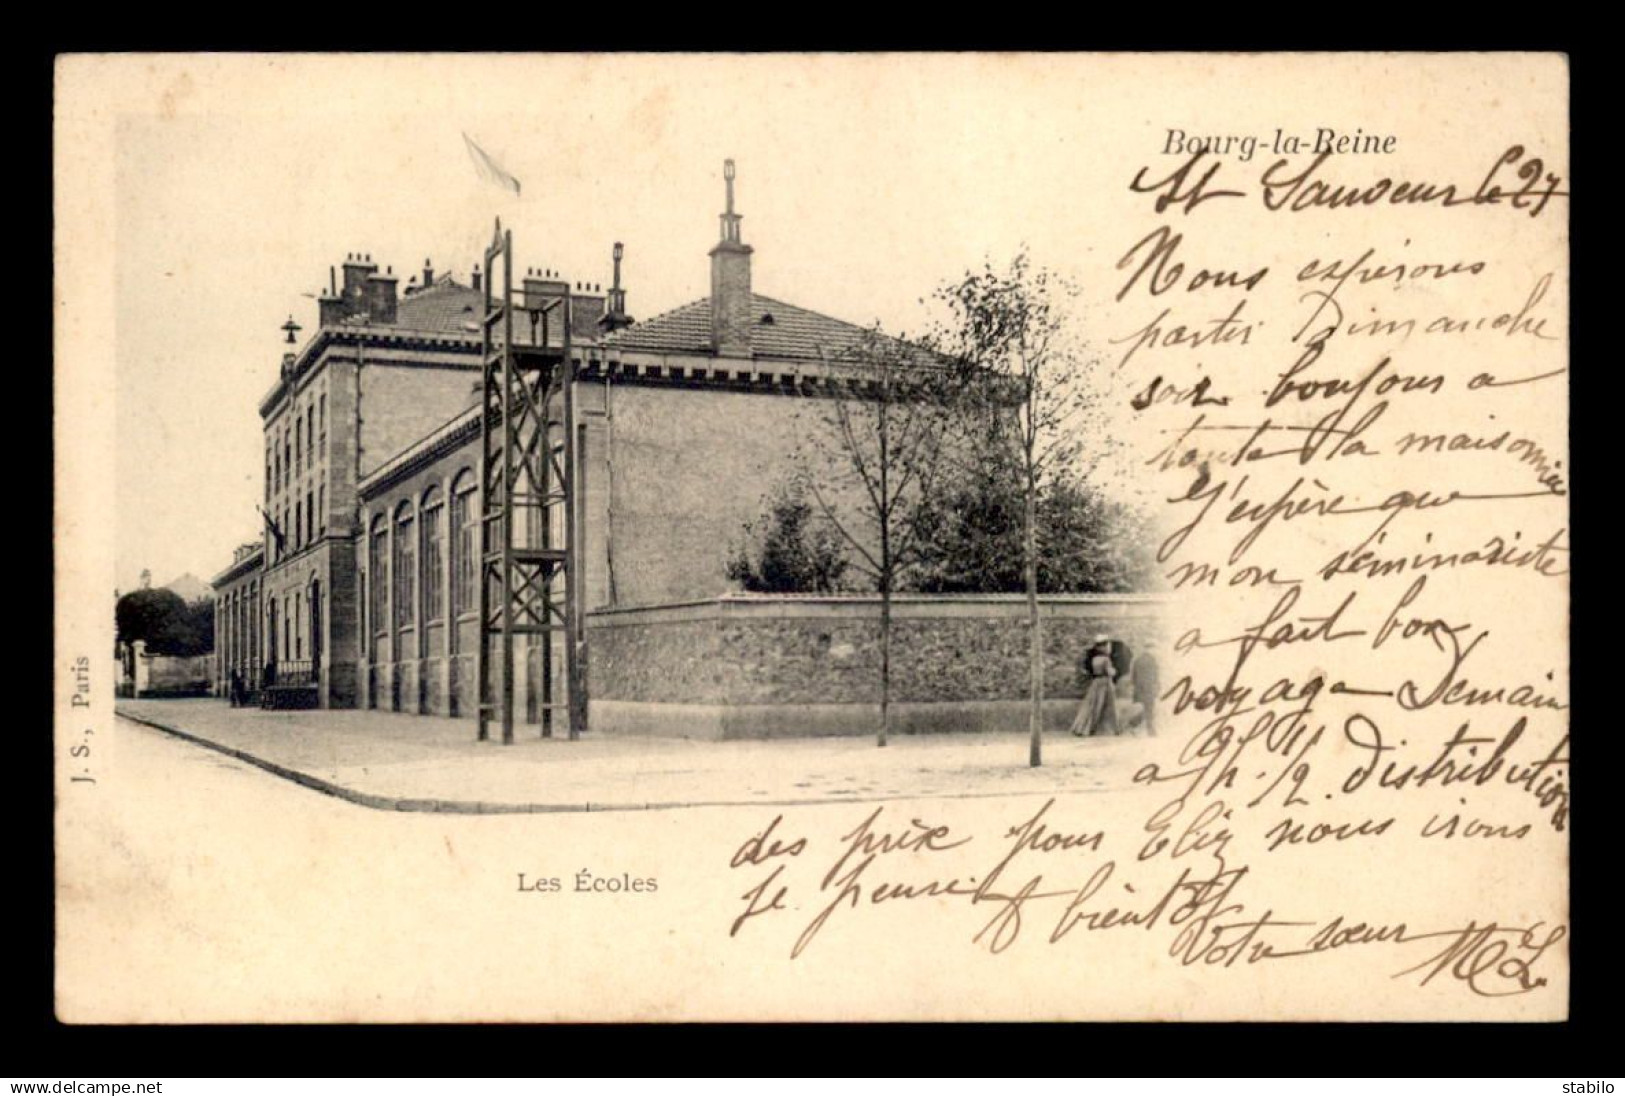 Bourg-la-Reine
St Sauveur le 27
Nous espérons
partir Dimanche
soir bonjour a
toute la maisonnée
J'espère que
mon séminariste
a fait bon
voyage Demain
a 9h. 1/2 distribution
des prix pour Eliz nous irons
je pense. A bientôt
Votre sœur
ML
Les Écoles
J. S., Paris
www.delcampe.net
stabilo